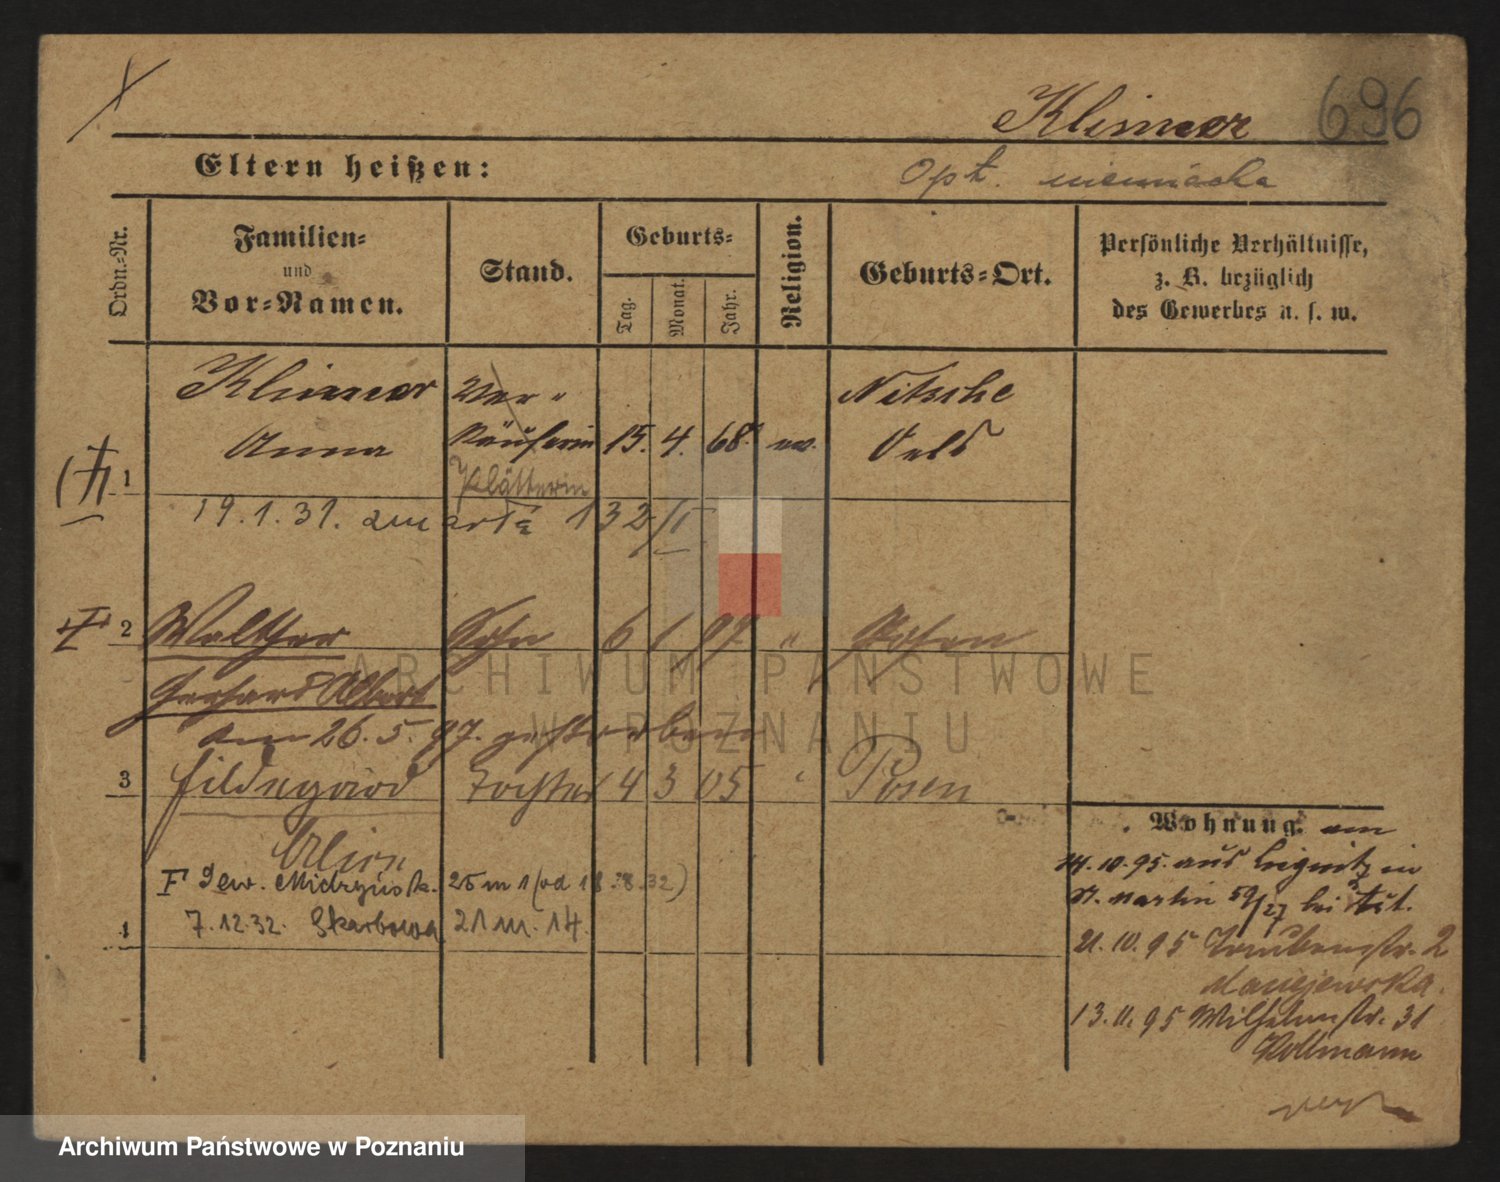 Klimor 696
Eltern heißen:
Opt. niemiecka
Ordn.-Nr.
Familien-
und
Vor-Namen.
Stand.
Geburts-
Tag.
Monat.
Jahr.
Religion.
Geburts-Ort.
Persönliche Verhältnisse,
z. B. bezüglich
des Gewerbes u. s. w.
Klimor Ver- Nitsche
1 Anna käuferin 15. 4. 68. ev. Oels
Plätterin
19.1.31. zmarła 132/I
2 Walther Sohn 6 1 97 " Posen
Gerhard Albert
am 26.5.97. gestorben
3 Hildegard Tochter 4 3 05 " Posen
F 25 m 1 (od 18.8.32)
4 7.12.32. Skarbowa 21 m. 14.
Wohnung: am
14.10.95. aus Liegnitz in
St. Martin 59/27 bei
21.10.95 Taubenstr. 2
Maciejewska.
13.11.95 Wilhelmstr. 31
Kollmann
ARCHIWUM PAŃSTWOWE
W POZNANIU
Archiwum Państwowe w Poznaniu